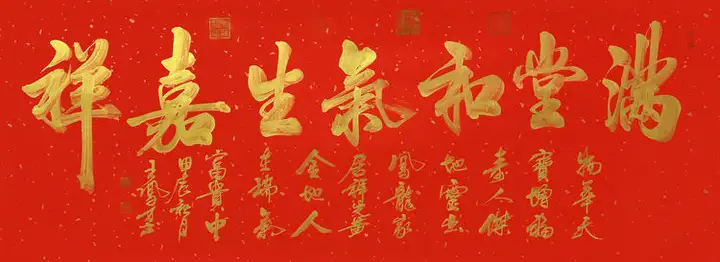 滿堂和氣生嘉祥
物華天
寶增福
壽人傑
地靈出
鳳龍家
居祥光黃
金地人
在瑞氣
富貴中
甲辰秋月
王鳳